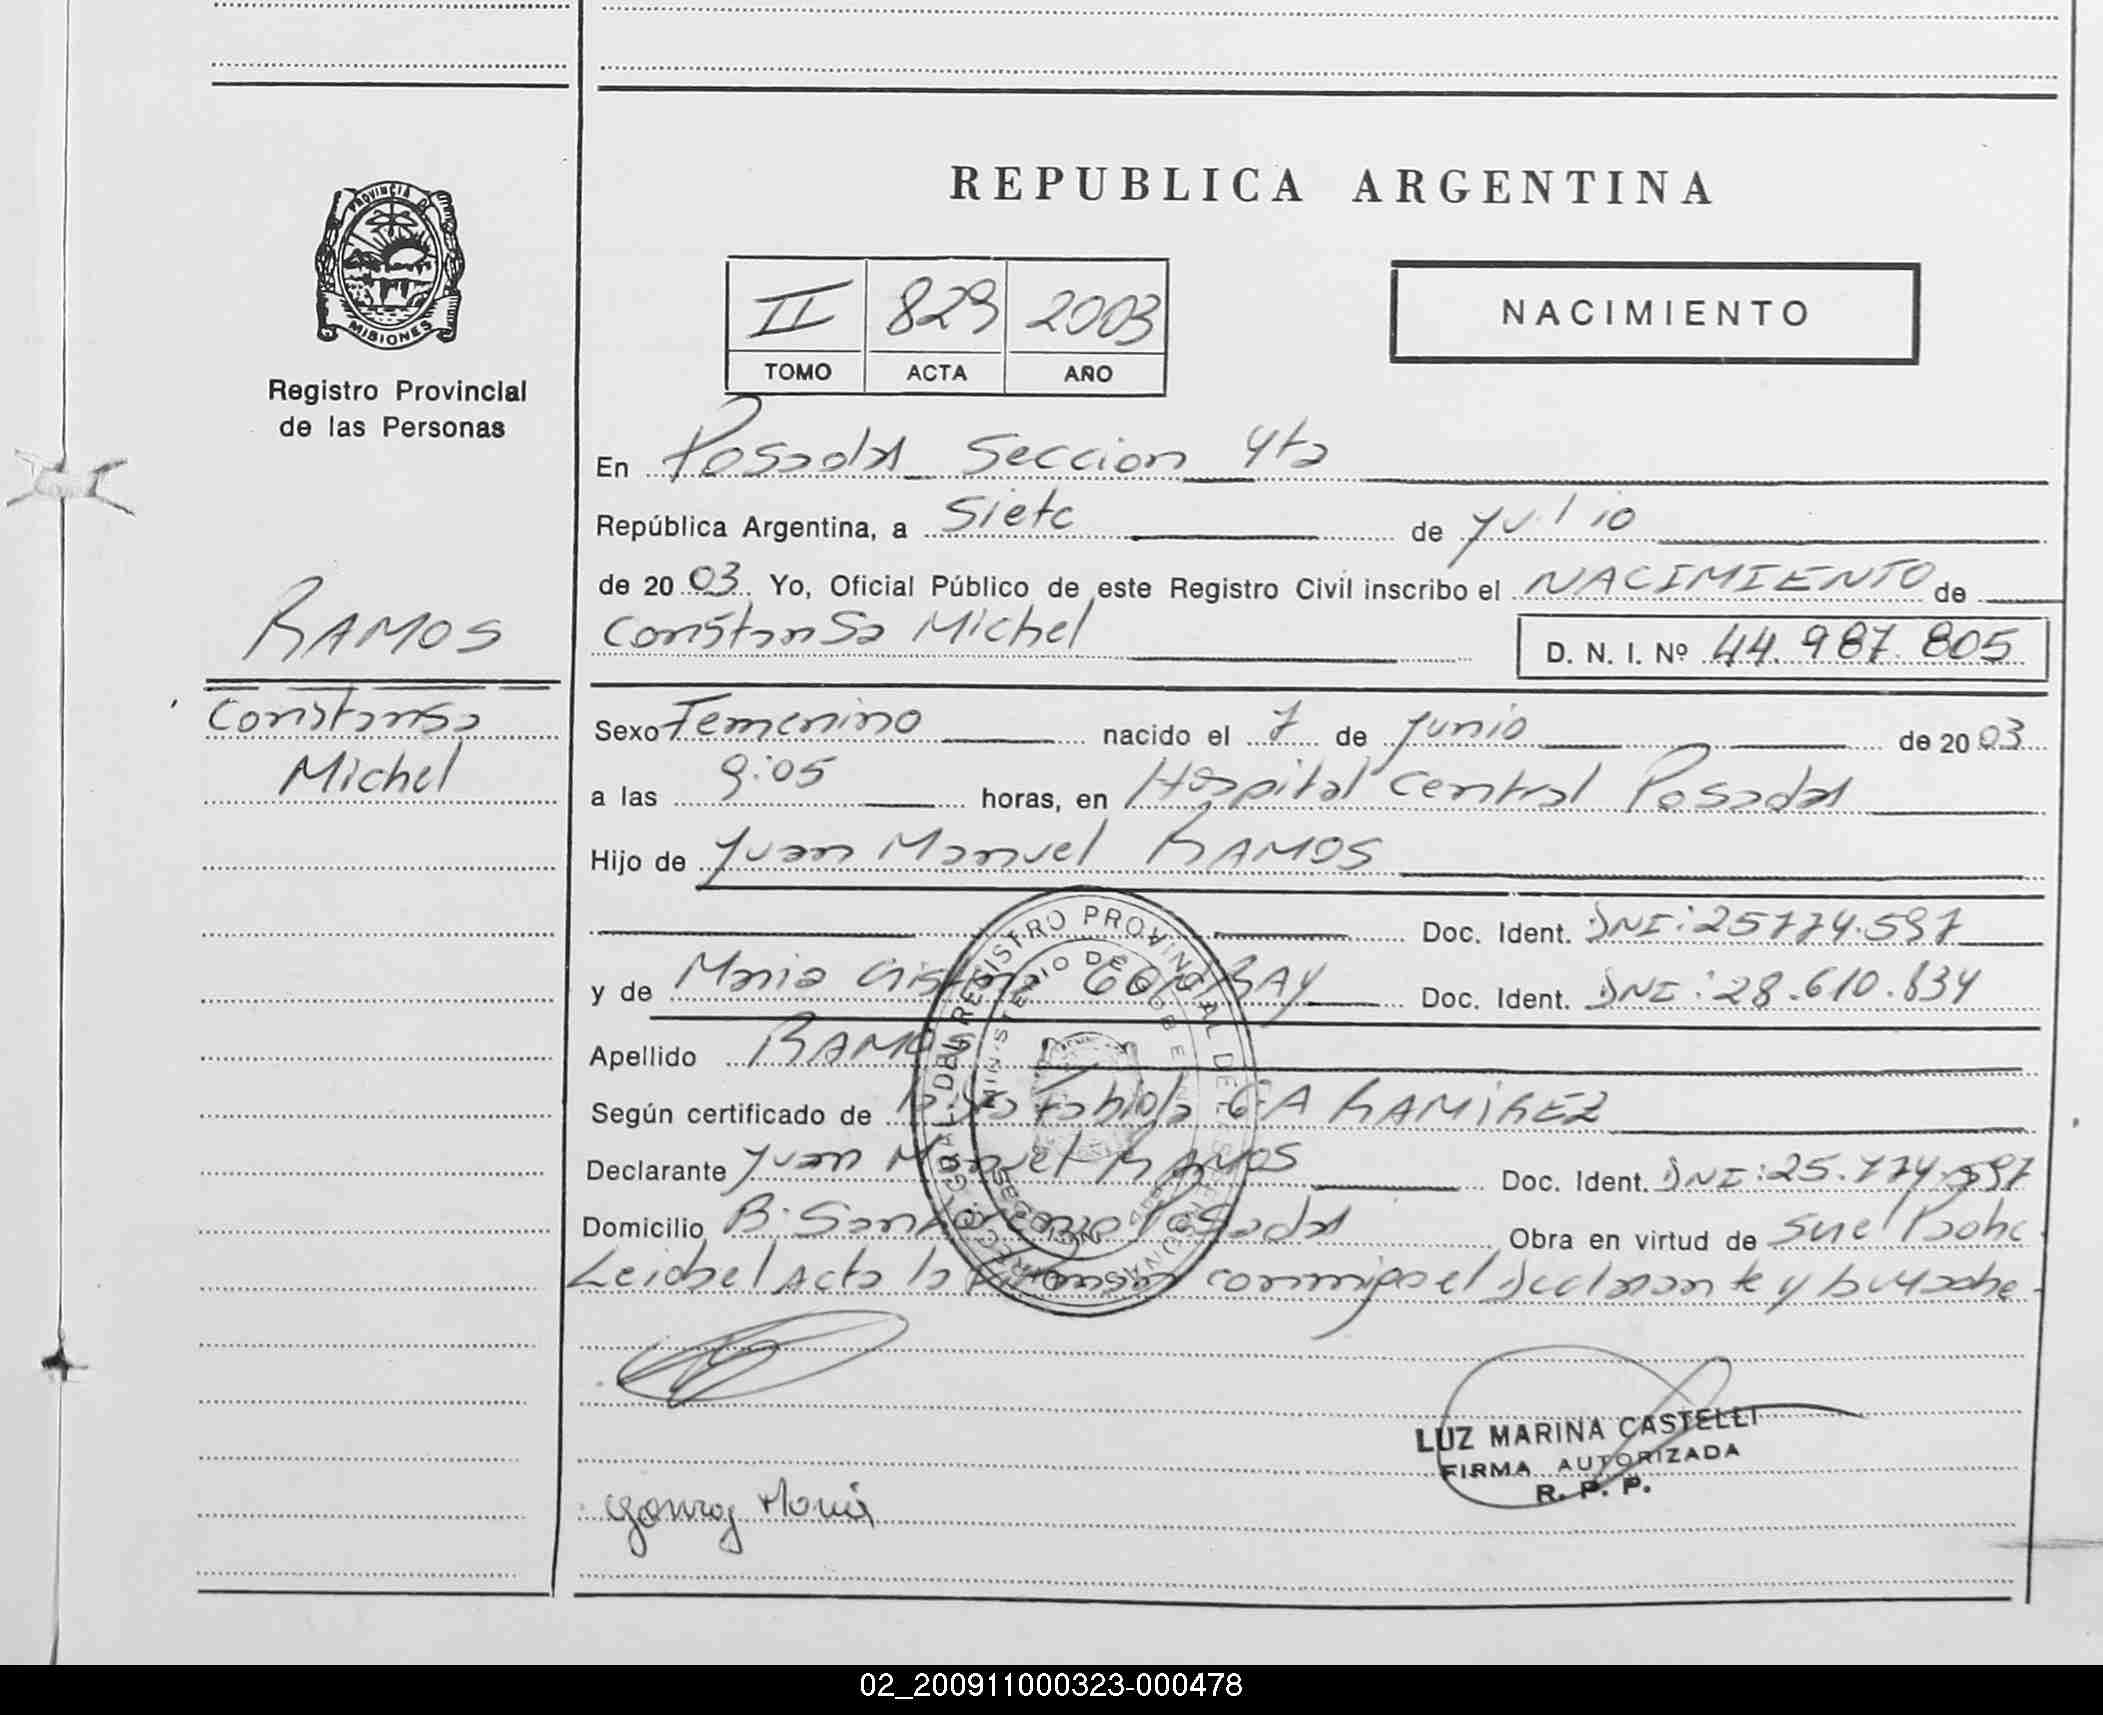 REPUBLICA ARGENTINA
PROVINCIA DE
MISIONES
Registro Provincial
de las Personas
II 829 2003
TOMO ACTA AÑO
NACIMIENTO
En Posadas Seccion 4ta
República Argentina, a Siete de Julio
de 2003. Yo, Oficial Público de este Registro Civil inscribo el NACIMIENTO de
Constansa Michel D. N. I. Nº 44.987.805
RAMOS
Constansa
Michel
Sexo Femenino nacido el 7 de Junio de 2003
a las 9:05 horas, en Hospital Central Posadas
Hijo de Juan Manuel RAMOS
Doc. Ident. DNI: 25774.597
y de Maria Cristina GODOY Doc. Ident. DNI: 28.610.834
Apellido RAMOS
Según certificado de Fabiola RAMIREZ
Declarante Juan Manuel RAMOS Doc. Ident. DNI: 25.774.597
Domicilio B: San Lorenzo Posadas Obra en virtud de
Leida el Acta la conmigo el declarante y
LUZ MARINA CASTELLI
FIRMA AUTORIZADA
R. P. P.
Maria
02_200911000323-000478